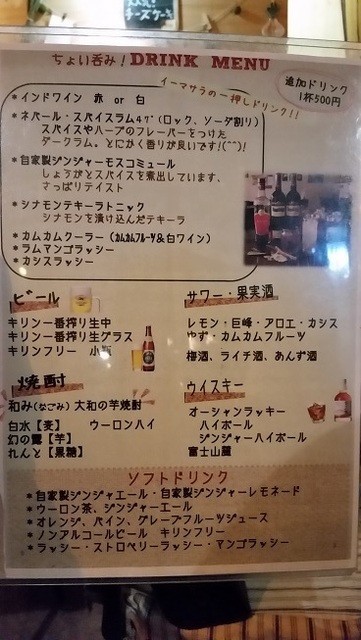 ちょい呑み!DRINK MENU
イーマサラの一押しドリンク!!
追加ドリンク
1杯500円
*インドワイン 赤 or 白
*ネパール・スパイスラム47°(ロック、ソーダ割り)
スパイスやハーブのフレーバーをつけた
ダークラム。とにかく香りが良いです!(^^)!
*自家製ジンジャーモスコミュール
しょうがとスパイスを煮出しています、
さっぱりテイスト
*シナモンテキーラトニック
シナモンを漬け込んだテキーラ
*カムカムクーラー(カムカムフルーツ&白ワイン)
*ラムマンゴラッシー
*カシスラッシー
ビール
キリン一番搾り生中
キリン一番搾り生グラス
キリンフリー 小瓶
サワー・果実酒
レモン・巨峰・アロエ・カシス
ゆず・カムカムフルーツ
梅酒、ライチ酒、あんず酒
焼酎
和み(なごみ)大和の芋焼酎
白水【麦】 ウーロンハイ
幻の露【芋】
れんと【黒糖】
ウイスキー
オーシャンラッキー
ハイボール
ジンジャーハイボール
富士山麓
ソフトドリンク
*自家製ジンジャエール・自家製ジンジャーレモネード
*ウーロン茶、ジンジャーエール
*オレンジ、パイン、グレープフルーツジュース
*ノンアルコールビール キリンフリー
*ラッシー・ストロベリーラッシー・マンゴラッシー